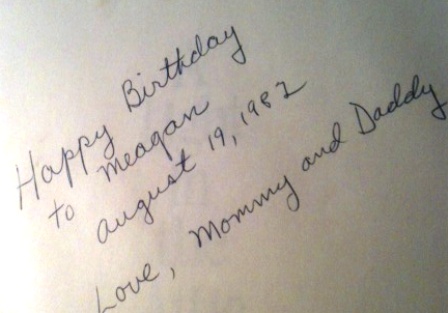 Happy Birthday
to Meagan
August 19, 1982
Love, Mommy and Daddy